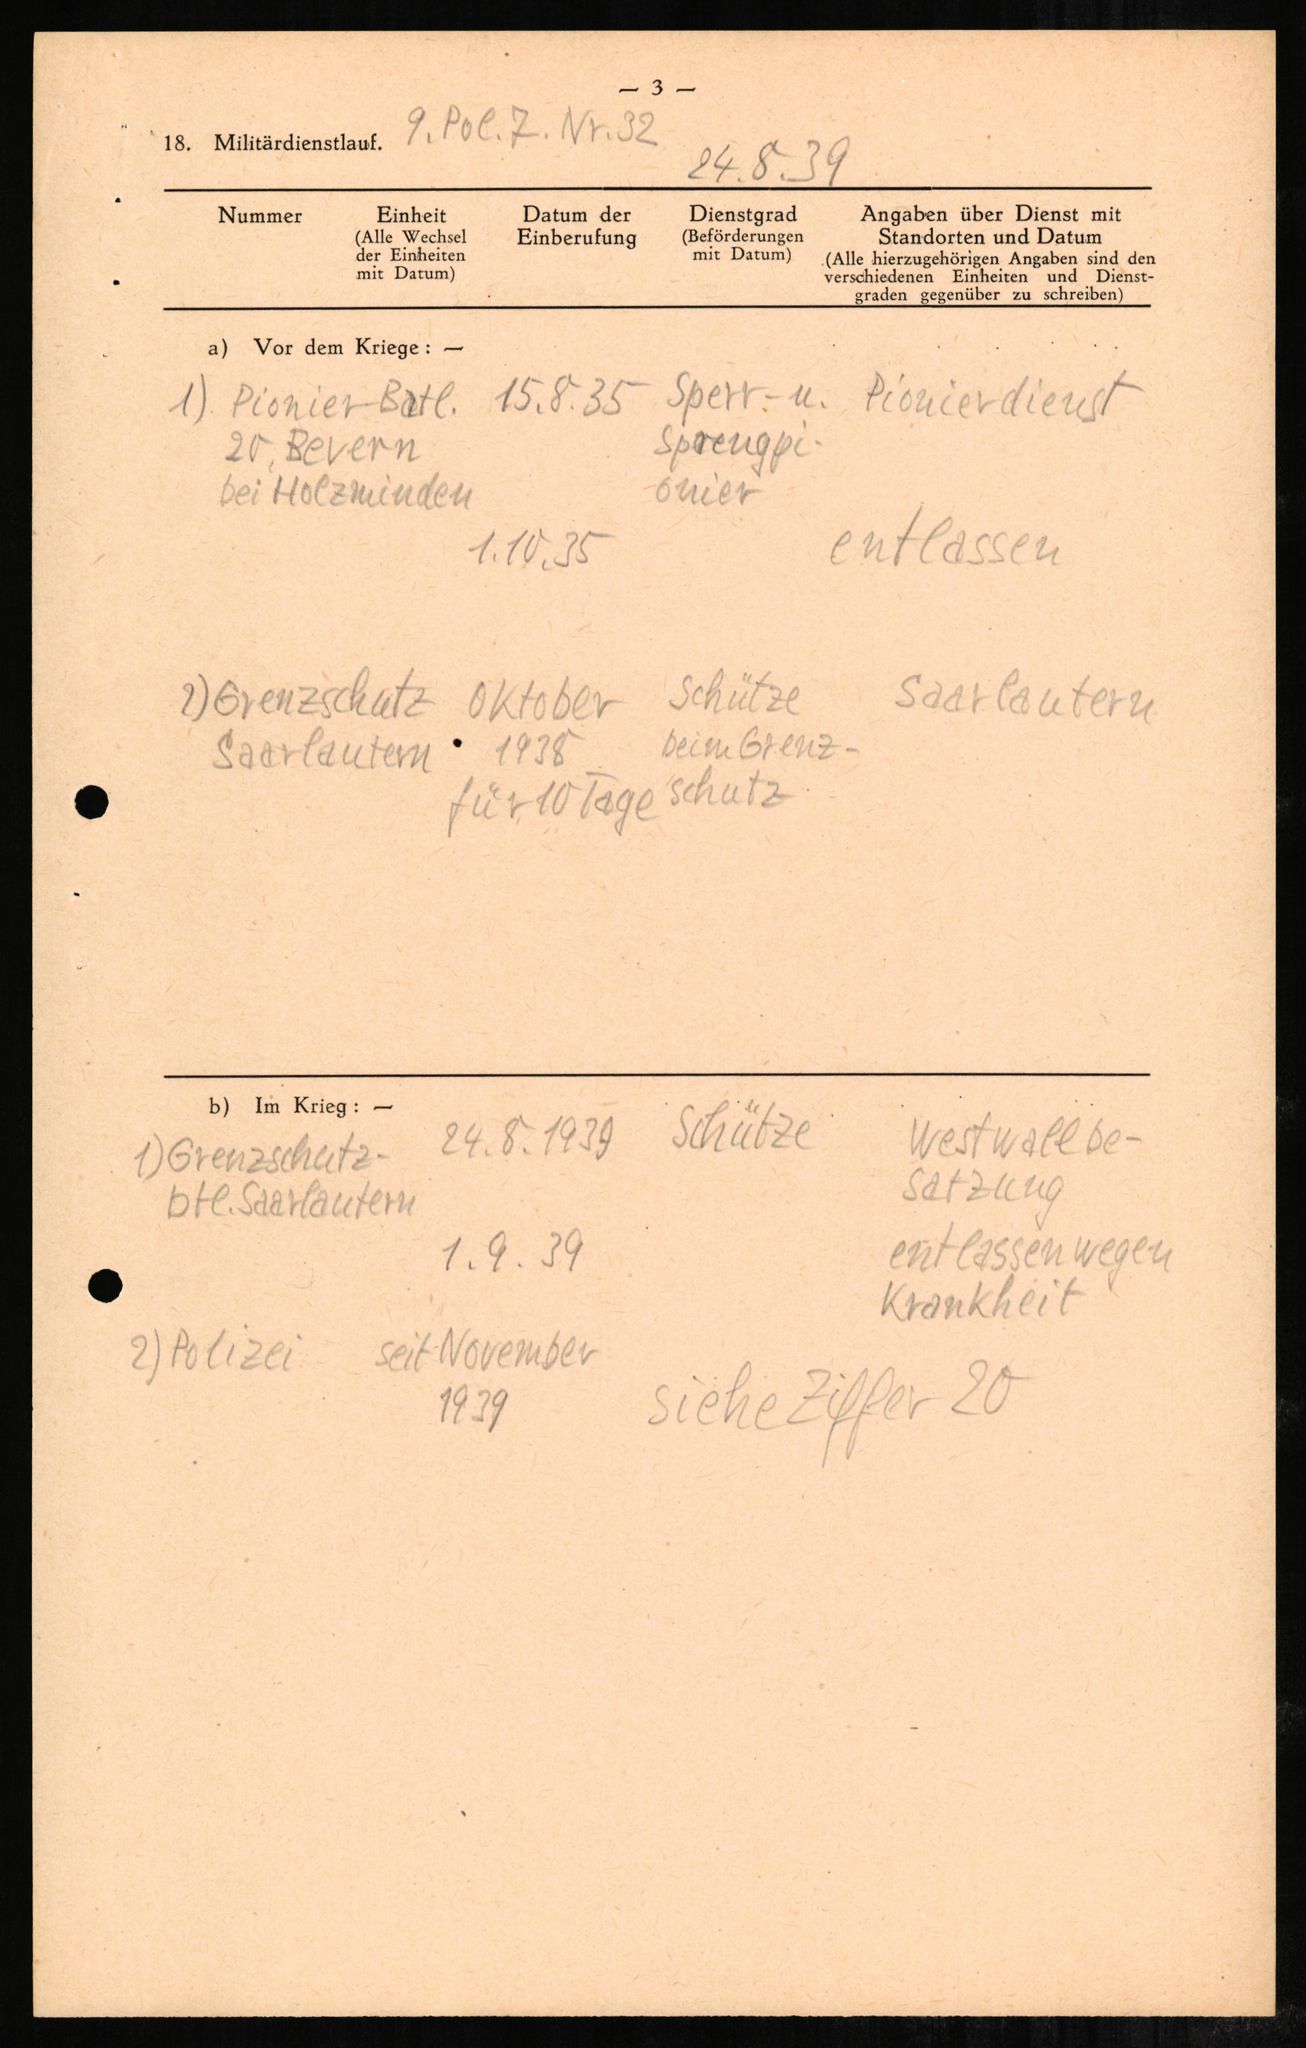 — 3 —
18. Militärdienstlauf. 9. Pol. Z. Nr. 32
24.8.39
Nummer Einheit Datum der Dienstgrad Angaben über Dienst mit
(Alle Wechsel Einberufung (Beförderungen Standorten und Datum
der Einheiten mit Datum) (Alle hierzugehörigen Angaben sind den
mit Datum) verschiedenen Einheiten und Dienst-
graden gegenüber zu schreiben)
a) Vor dem Kriege: —
1) Pionier-Batl. 15.8.35 Sperr- u. Pionierdienst
20, Bevern Sprengpi-
bei Holzminden onier
1.10.35 entlassen
2) Grenzschutz Oktober Schütze Saarlautern
Saarlautern 1938 beim Grenz-
für 10 Tage schutz
b) Im Krieg: —
1) Grenzschutz- 24.8.1939 Schütze Westwallbe-
btl. Saarlautern satzung
1.9.39 entlassen wegen
Krankheit
2) Polizei seit November
1939 siehe Ziffer 20